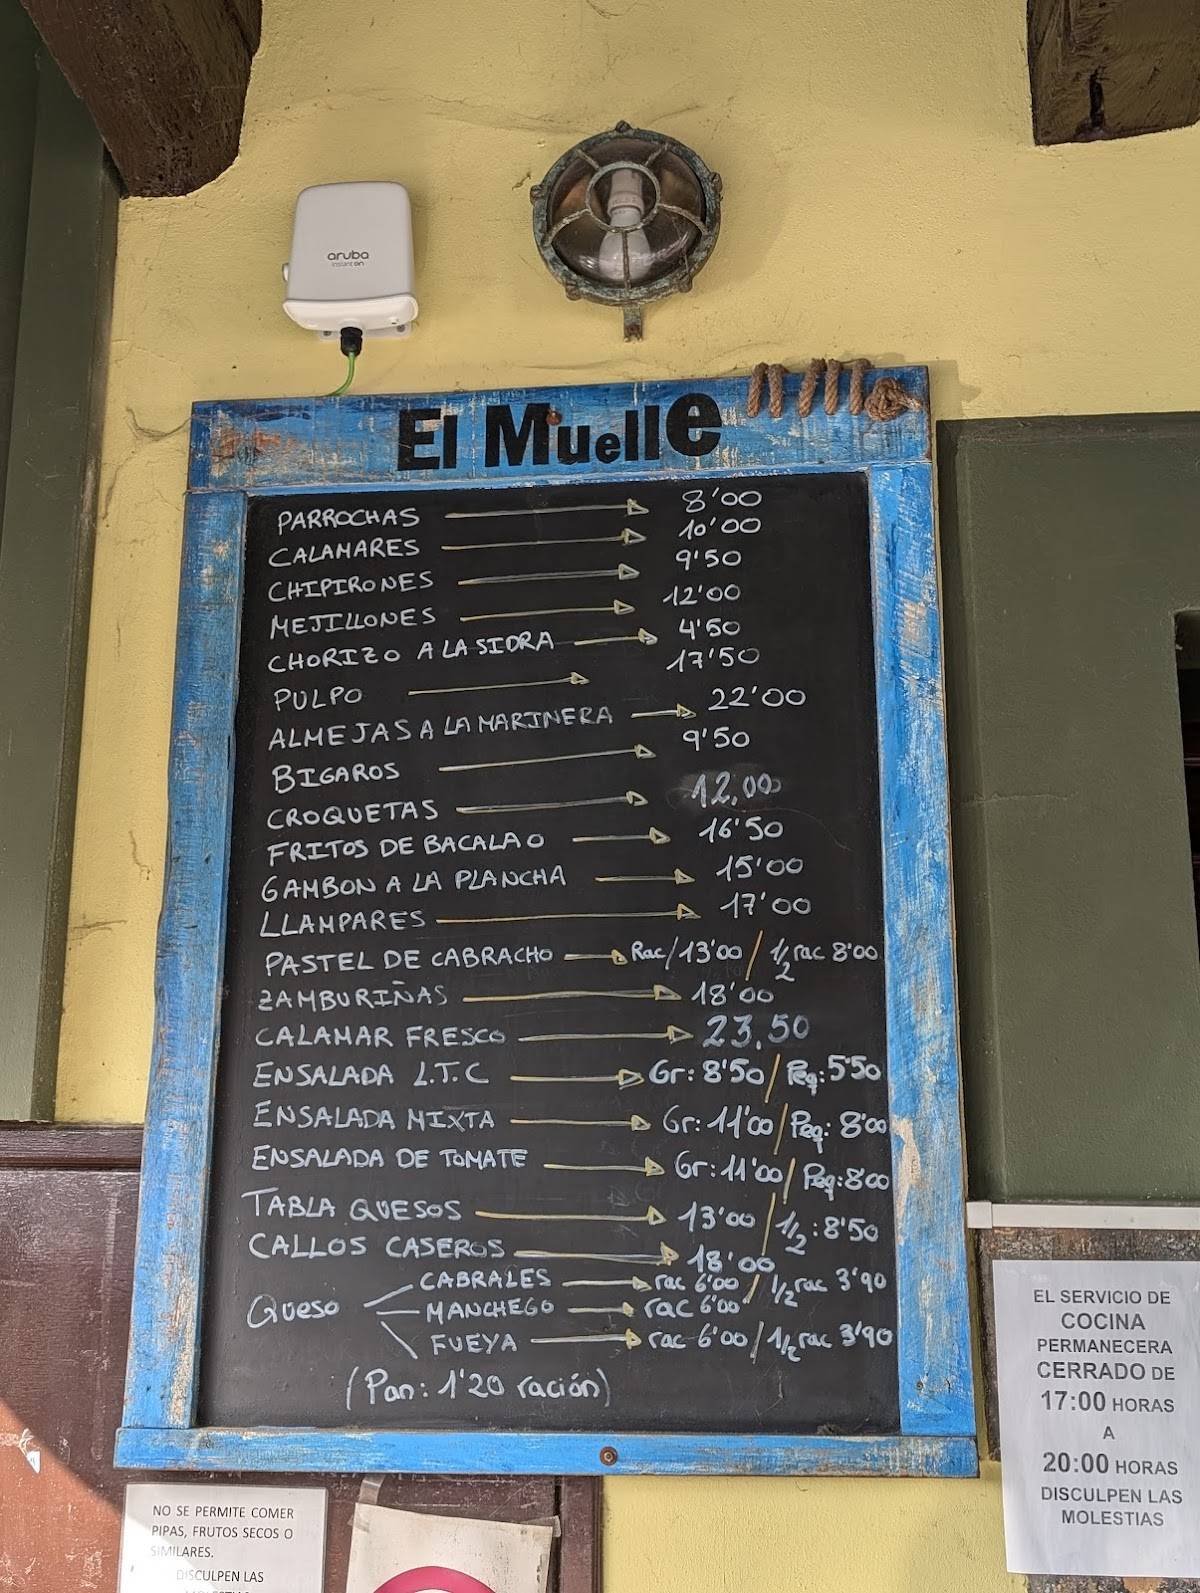 aruba
instant on
El Muelle
PARROCHAS 8'00
CALAMARES 10'00
CHIPIRONES 9'50
MEJILLONES 12'00
CHORIZO A LA SIDRA 4'50
PULPO 17'50
ALMEJAS A LA MARINERA 22'00
BIGAROS 9'50
CROQUETAS 12,00
FRITOS DE BACALAO 16'50
GAMBON A LA PLANCHA 15'00
LLAMPARES 17'00
PASTEL DE CABRACHO Rac/13'00 / 1/2 rac 8'00
ZAMBURIÑAS 18'00
CALAMAR FRESCO 23,50
ENSALADA L.T.C Gr: 8'50 / Peq: 5'50
ENSALADA MIXTA Gr: 11'00 / Peq: 8'00
ENSALADA DE TOMATE Gr: 11'00 / Peq: 8'00
TABLA QUESOS 13'00 / 1/2: 8'50
CALLOS CASEROS 18'00
CABRALES rac 6'00 / 1/2 rac 3'90
Queso MANCHEGO rac 6'00
FUEYA rac 6'00 / 1/2 rac 3'90
(Pan: 1'20 ración)
EL SERVICIO DE
COCINA
PERMANECERA
CERRADO DE
17:00 HORAS
A
20:00 HORAS
DISCULPEN LAS
MOLESTIAS
NO SE PERMITE COMER
PIPAS, FRUTOS SECOS O
SIMILARES.
DISCULPEN LAS